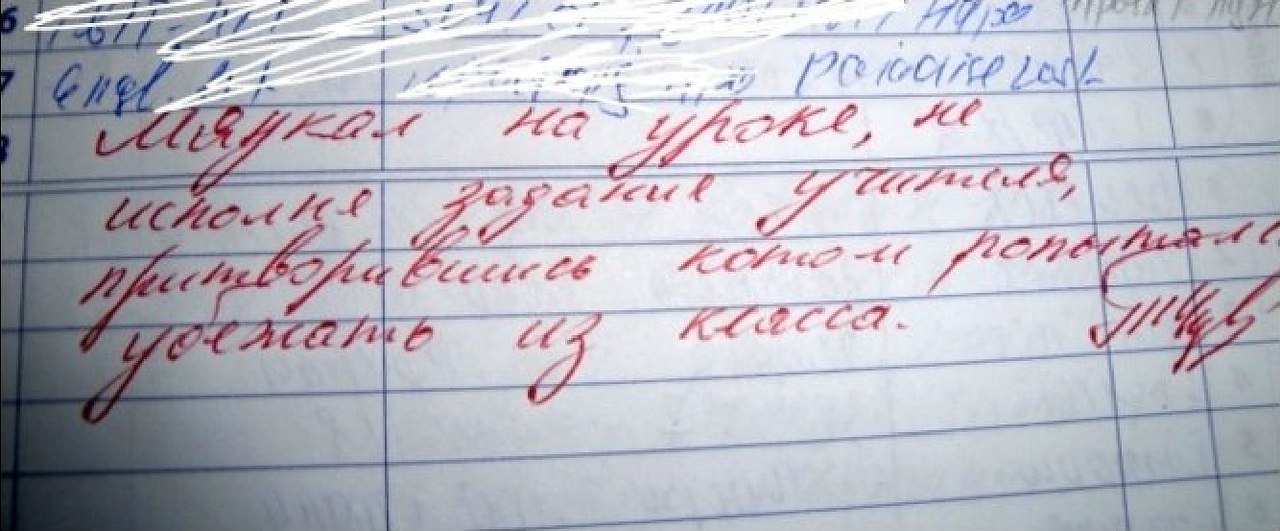 6
7 engl. lit paradise lost
8 Мяукал на уроке, не
исполня задание учителя,
притворившись котом попытался
убежать из класса.